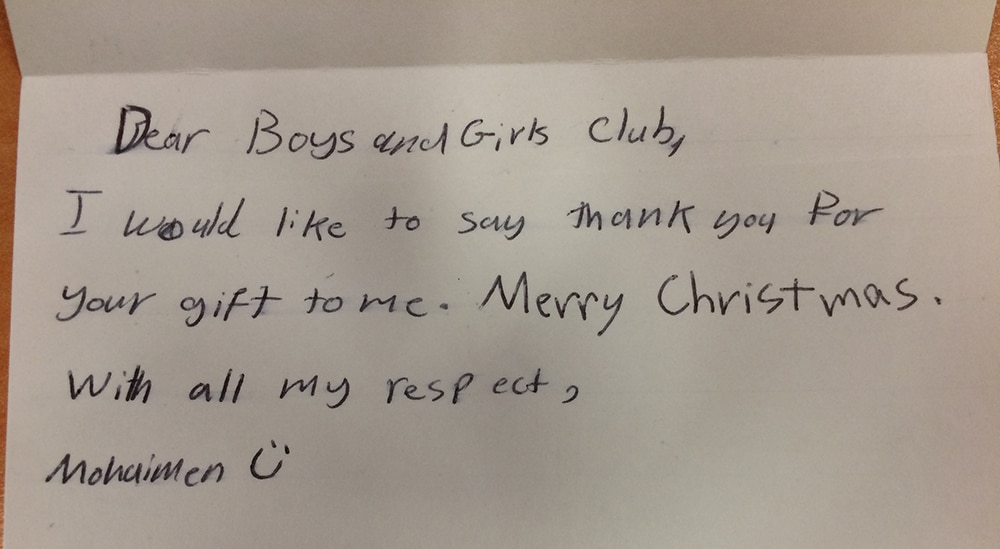 Dear Boys and Girls Club,
I would like to say thank you for
your gift to me. Merry Christmas.
With all my respect,
Mohaimen Ü